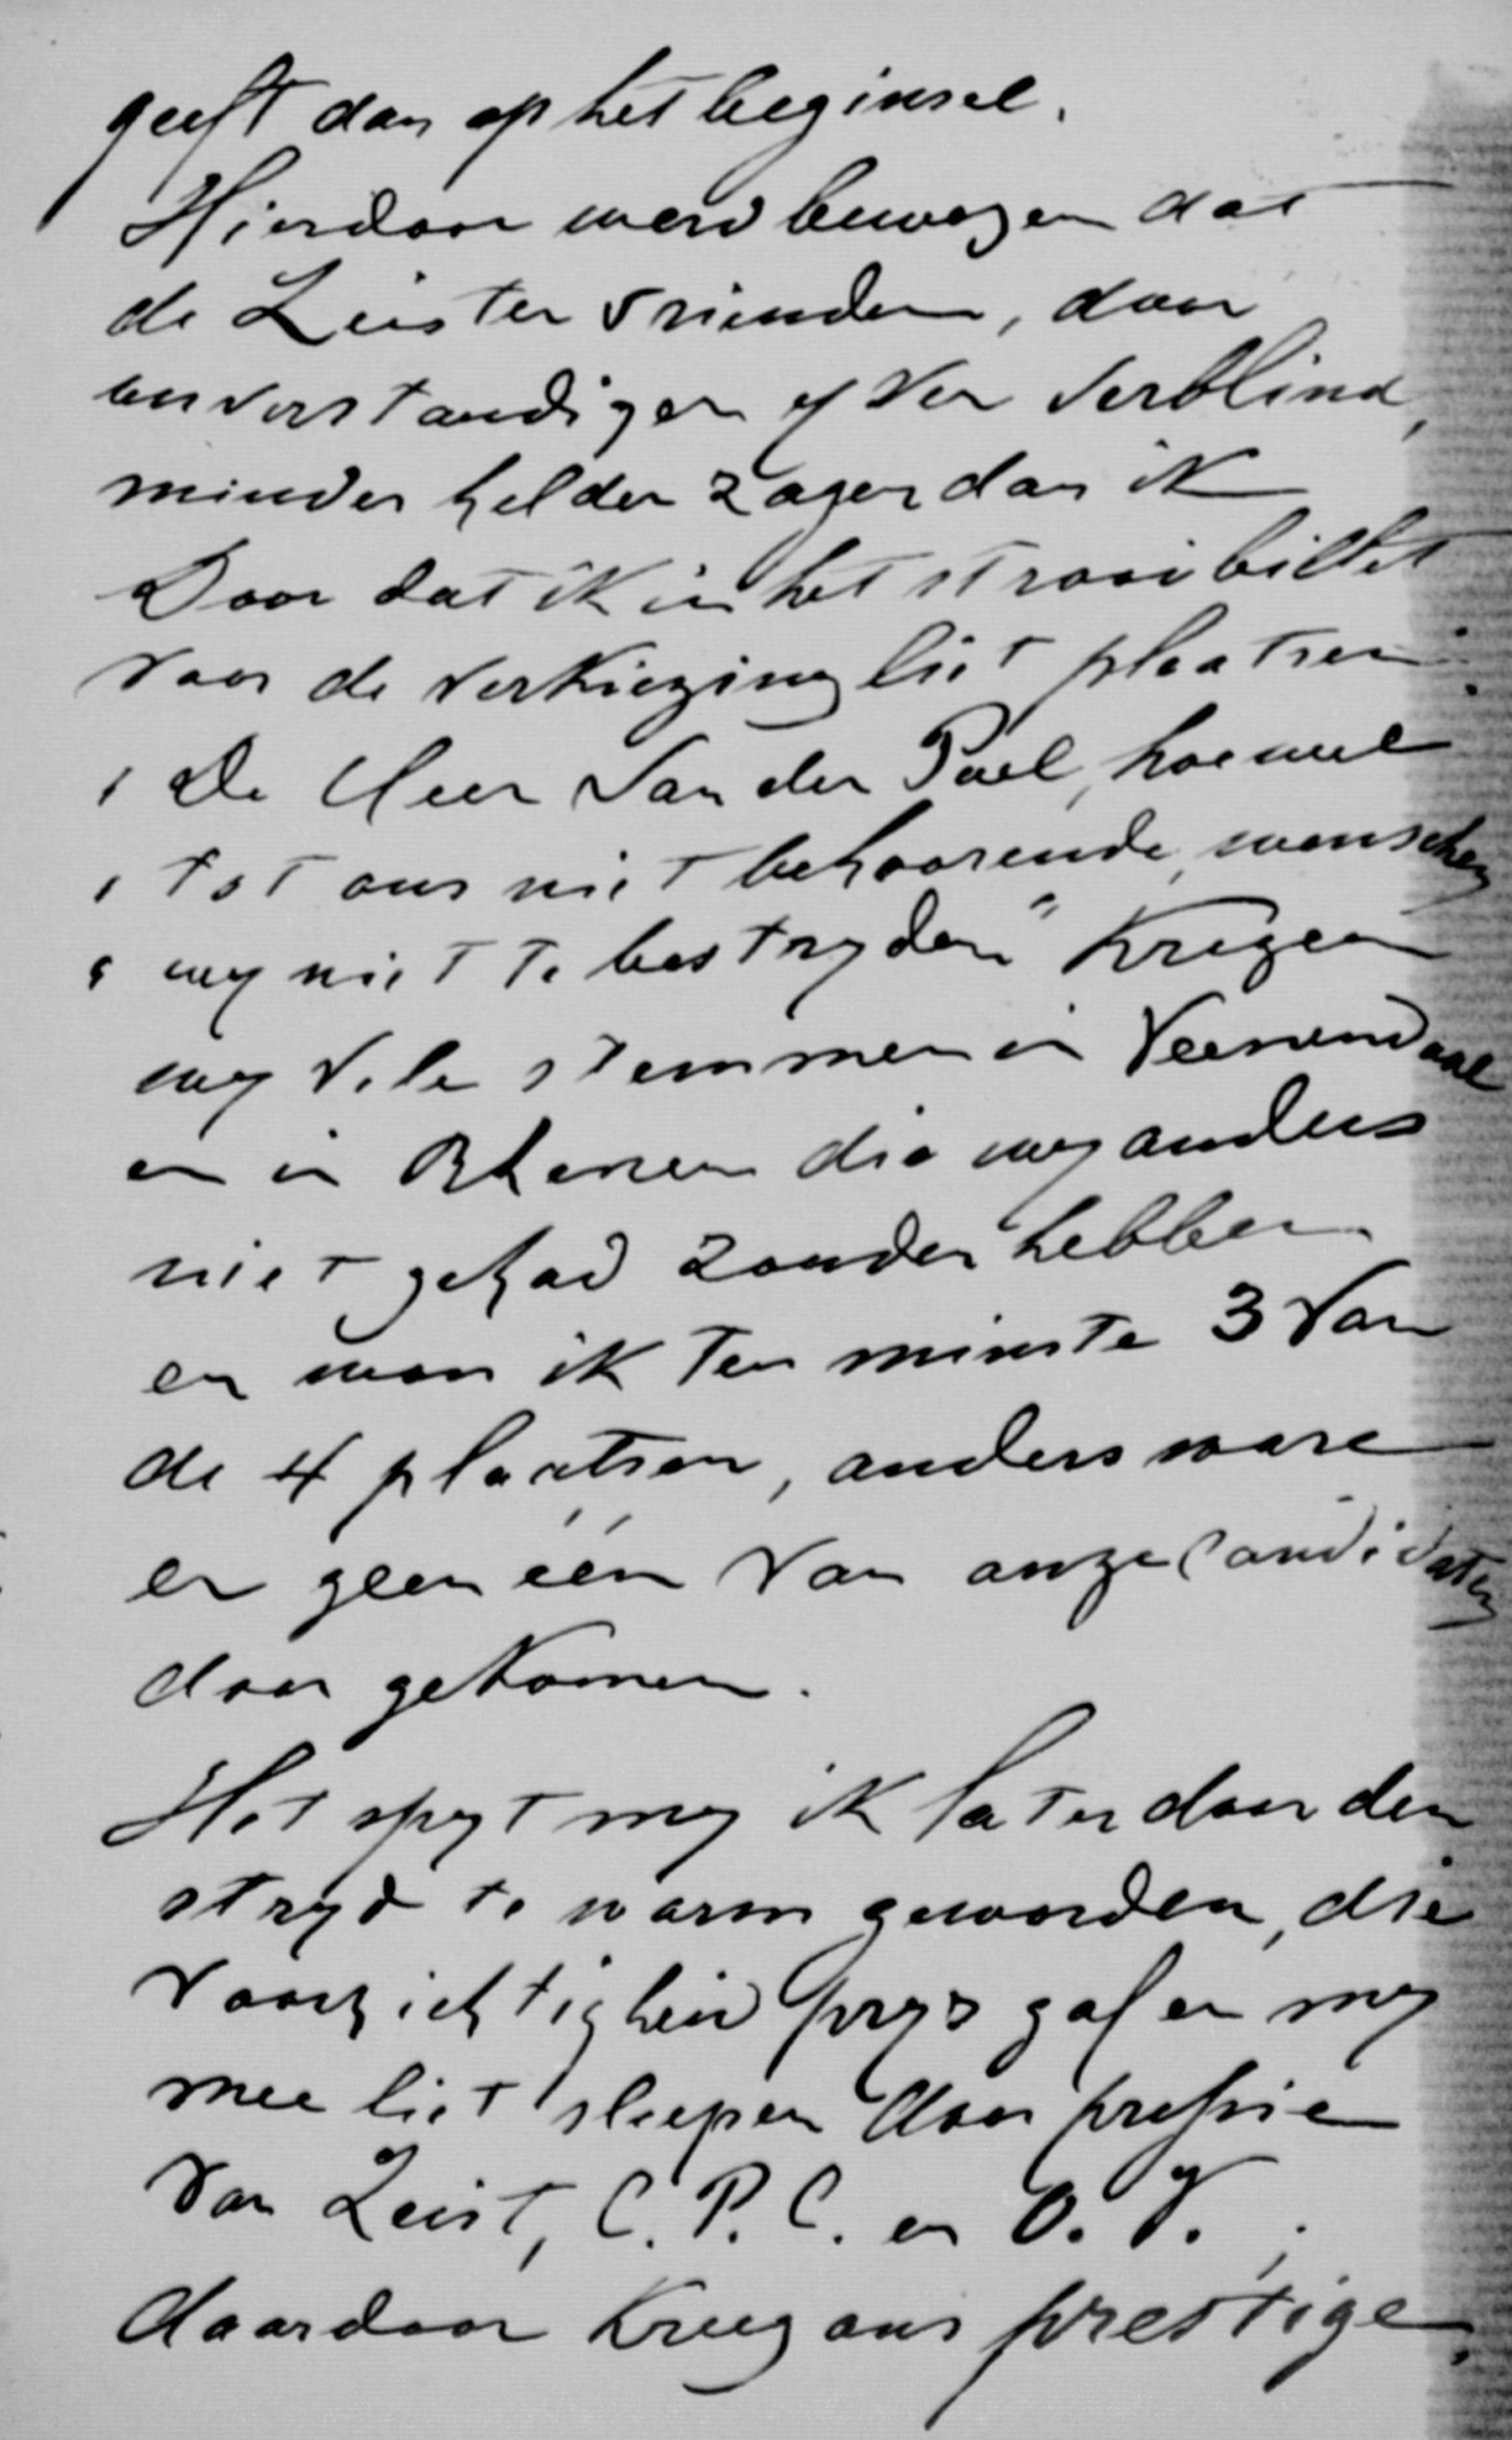 geeft dan op het beginsel.
Hierdoor werd bewogen dat
de Zeister vrienden, door
onverstandigen yver verblind,
minder helder zagen dan ik
Door dat ik in het strooibillet
voor de verkiezing liet plaatsen:
, De Heer van der Poel, hoewel
, tot ons niet behoorende, wenschen
, wy niet te bestryden" kregen
wy vele stemmen in Veenendaal
en in Rhenen die wy anders
niet gehad zouden hebben
en won ik ten minste 3 van
de 4 plaatsen, anders ware
er geen één van onze Candidaten
door gekomen.
Het spyt my ik later door den
stryd te warm geworden, die
voorzichtigheid prys gaf en my
mee liet sleepen door pressie
van Zeist, C. P. C. en O. V. ;
daardoor kreeg ons prestige,